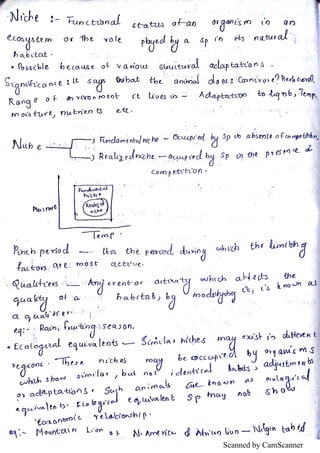 Niche :- Functional status of an organism in an
ecosystem or the role played by a sp in its natural
habitat.
• Possible because of various structural adaptations.
Significance : It says what the animal does: Carnivore? Herbivore?,
Range of environment it lives in - Adaptation to light, Temp,
moisture, nutrients etc.
→ Fundamental niche - Occupied by sp in absence of competition
→ Realized niche - occupied by sp in the presence of
competition.
Fundamental
niche
Realized
niche
Moisture
Temp
Pinch period - It is the period during which the limiting
factors are most active.
Qualifiers - Any event or activity which affects the
quality of a habitat, by modifying it, is known as
a qualifier.
eg:- Rain, fruiting season.
• Ecological equivalents - Similar niches may exist in different
regions. These niches may be occupied by organisms
which show similar, but not identical habits, adjustments
or adaptations. Such animals are known as ecological
equivalents. Ecological equivalent sp may not show
taxonomic relationship.
eg:- Mountain Lion of N. America & African lion - Nilgiri tahr
Scanned by CamScanner